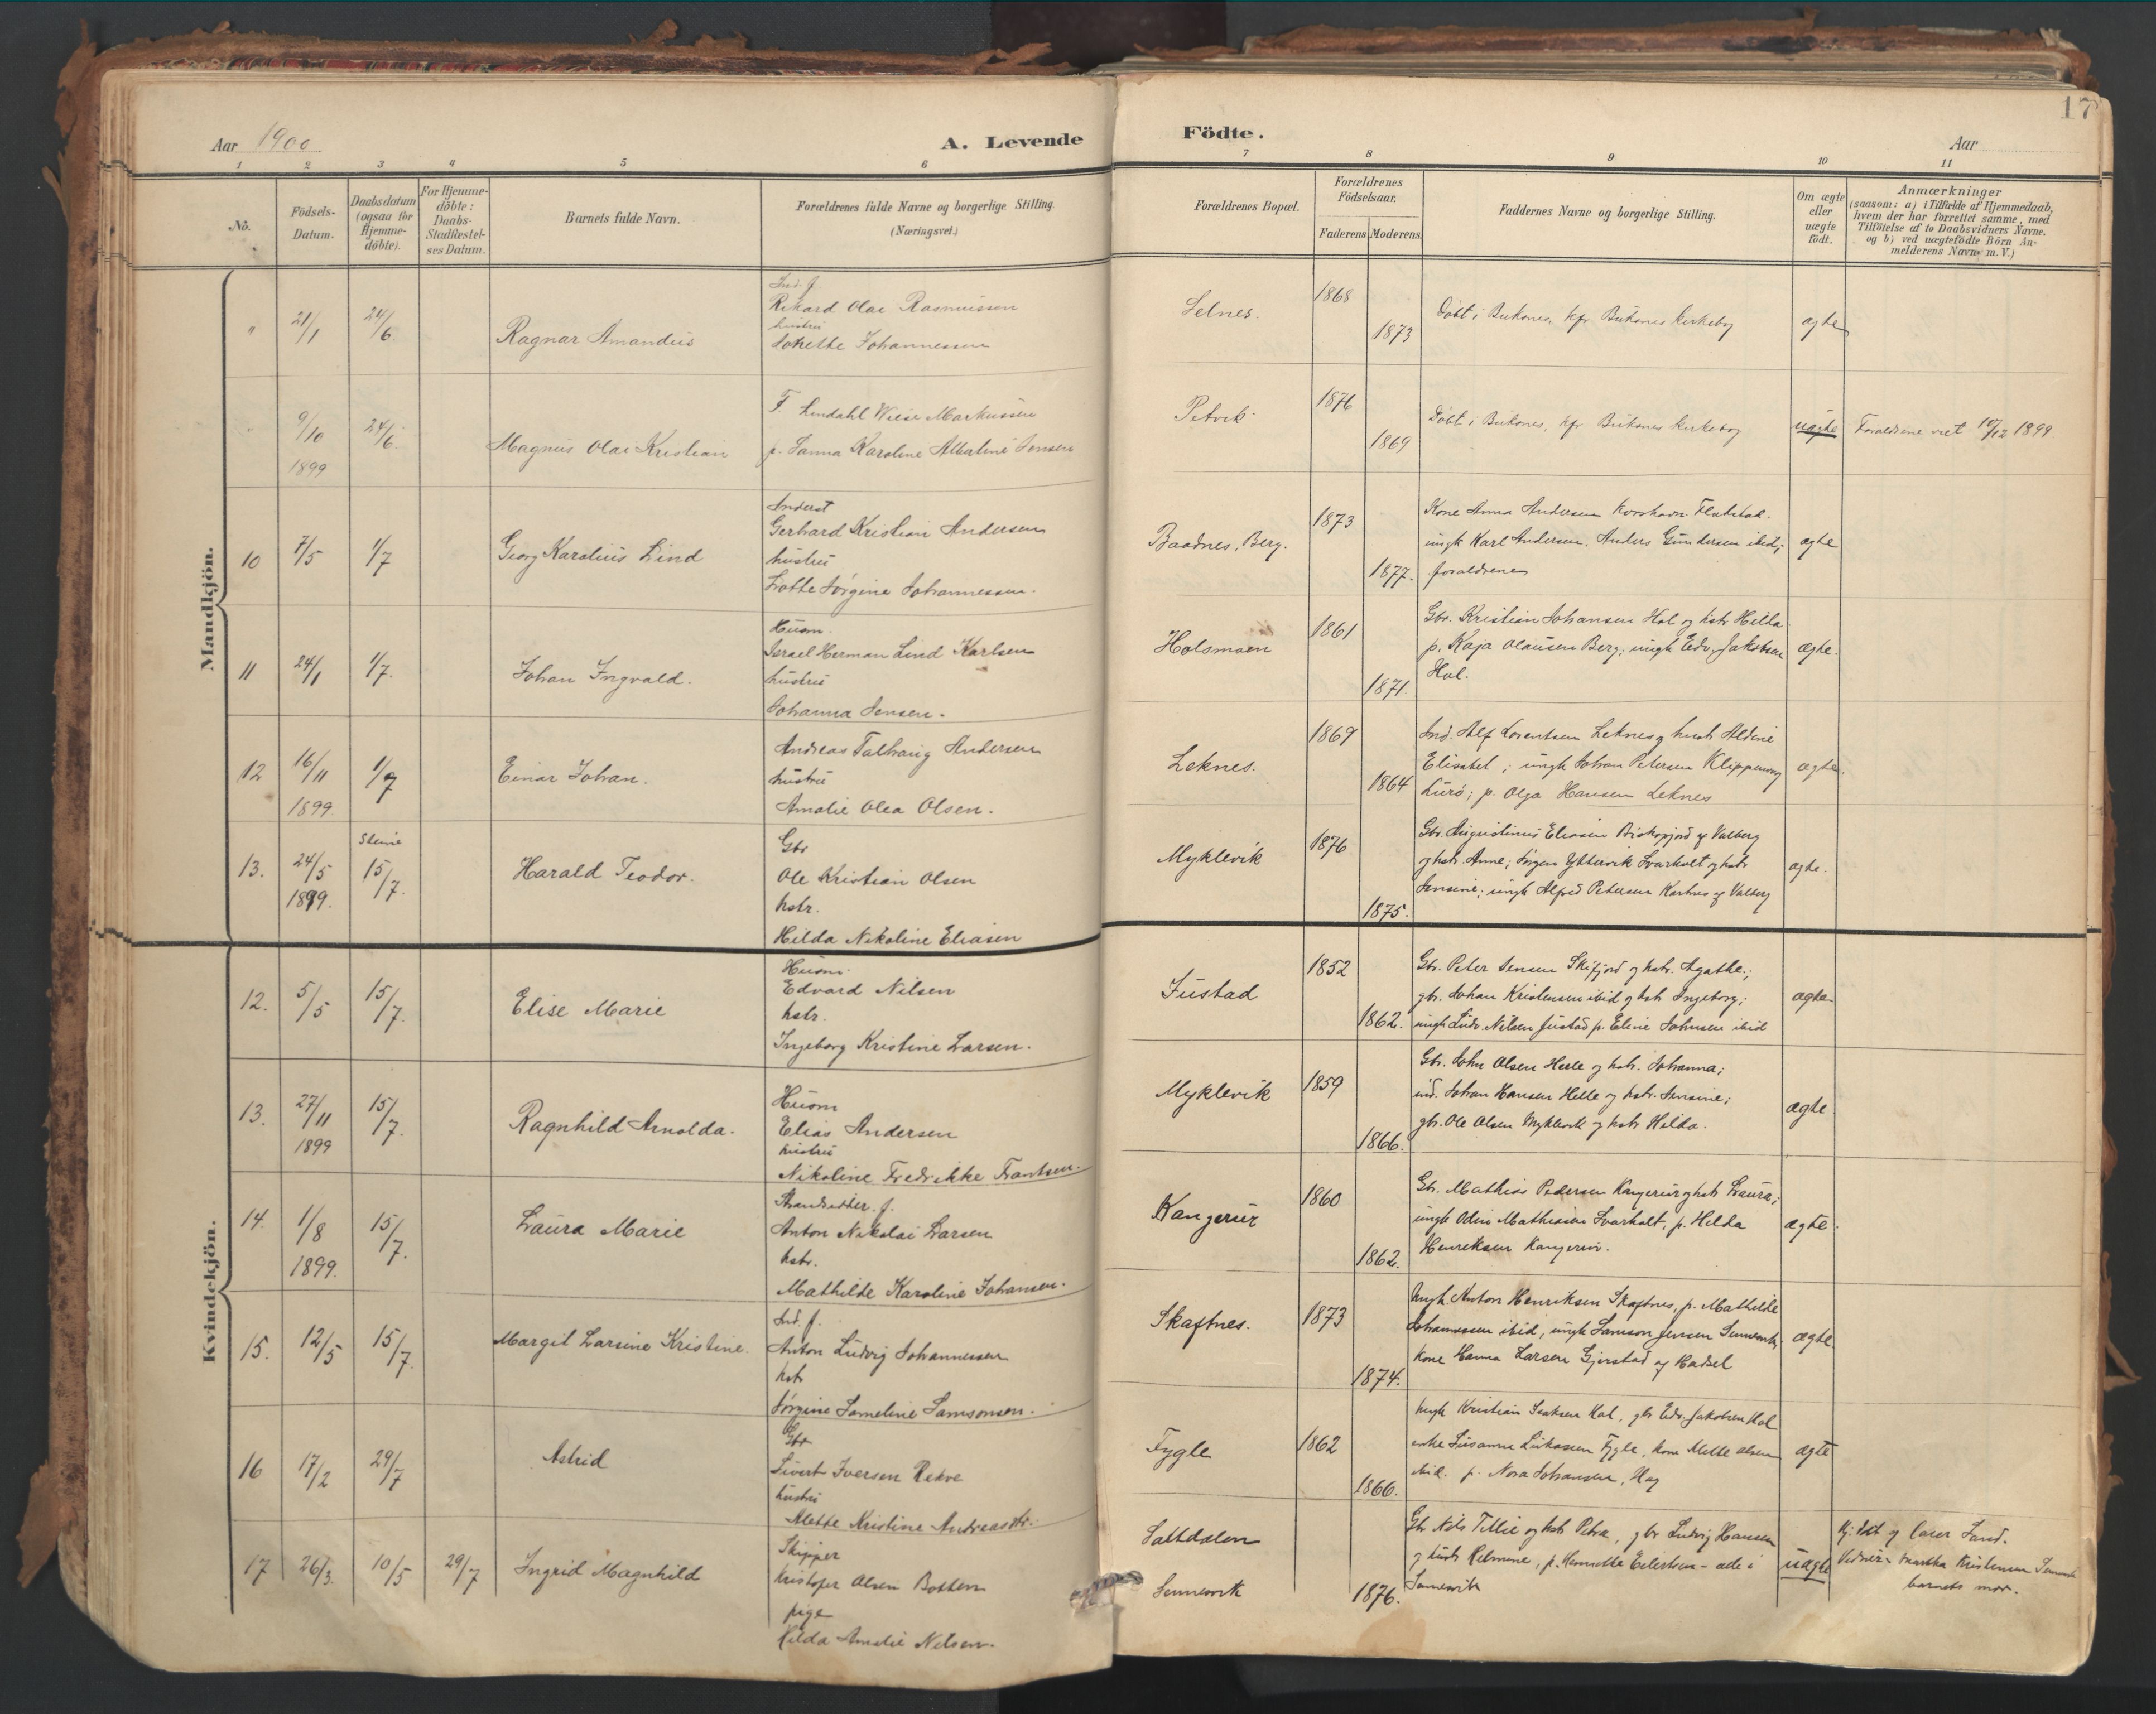 17
Aar 1900
A. Levende
Födte.
Aar
1 2 3 4 5 6 7 8 9 10 11
No.
Födsels-
Datum.
Daabsdatum
(ogsaa for
Hjemme-
döbte).
For Hjemme-
döbte:
Daabs-
Stadfæstel-
ses Datum.
Barnets fulde Navn.
Forældrenes fulde Navne og borgerlige Stilling.
(Næringsvei.)
Forældrenes Bopæl.
Forældrenes
Födselsaar.
Faderens. Moderens.
Faddernes Navne og borgerlige Stilling.
Om ægte
eller
uægte
födt.
Anmærkninger
(saasom: a) i Tilfælde af Hjemmedaab,
hvem der har forrettet samme, med
Tilföielse af to Daabsvidners Navne,
og b) ved uægtefödte Börn An-
melderens Navn m. V.)
Mandkjön.
" 21/1 24/6 Ragnar Amandus
Ind. f.
Rikard Olai Rasmussen
hustru
Johannessen
Selnes. 1868 1873
Døbt i Buksnes, kfr. Buksnes kirkebog
ægte
9/10 1899 24/6 Magnus Olai Kristian
F. Lendahl Wiese Markussen
p. Sanna Karoline Albertine Jensen
Petvik 1876 1869
Døbt i Buksnes, kfr Buksnes kirkebog
uægte
Forældrene viet 10/12 1899
10 7/5 1/7 Georg Karolius Lind
Gerhard Kristian Andersen
hustru
Lotte Jørgine Johannessen.
Baadnes, Berg. 1873 1877.
Kone Anna Andersen
ungk Karl Andersen, Anders Gundersen ibid;
forældrene
ægte
11 24/1 1/7. Johan Ingvald.
Husm.
Israel Herman Lind Karlsen
hustru
Johanna Jensen.
Holsmoen 1861 1871.
Gbr. Kristian Johansen Hol og hstr Hilda
p. Kaja Olausen Berg; ungk Edv. Jakobsen
Hol.
ægte.
12 16/11 1899 1/7 Einar Johan.
Andreas Falhaug Andersen
hustru
Amalie Olea Olsen.
Leknes. 1869 1864
Ind. Alf Lorentsen Leknes og hustr Aldine
Elisabet; ungk Johan Petersen
Lurø; p. Olga Hansen Leknes
ægte.
13. 24/5 1899. Steine 15/7. Harald Teodor.
Gbr
Ole Kristian Olsen
hstr.
Hilda Nikoline Eliasen
Myklevik 1876 1875.
Gbr. Augustinus Eliasen af Valberg
og hstr. Anne; Jørgen Yttervik Svarholt og hstr
Jensine; ungk Alfred Petersen af Valberg
ægte.
Kvindekjön.
12. 5/5 15/7. Elise Marie
Husm.
Edvard Nilsen
hstr.
Ingeborg Kristine Larsen.
Justad 1852 1862.
Gbr. Peter Jensen Skifjord og hstr. Agathe;
gbr. Johan Kristensen ibid og hstr Ingeborg;
ungk Ludv. Nilsen Justad p. Eline Johnsen ibid
ægte
13. 27/11 1899 15/7. Ragnhild Arnolda.
Husm
Elias Andersen
hustru
Nikoline Fredrikke Frantsen.
Myklevik 1859 1866.
Gbr. John Olsen Helle og hstr. Johanna;
ind. Johan Hansen Helle og hstr. Jensine;
gbr. Ole Olsen Myklevik og hstr Hilda.
ægte
14. 1/8 1899. 15/7. Laura Marie
Strandsidder. f.
Anton Nikolai Larsen
hstr.
Mathilde Karoline Johansen.
Kangerur 1860 1862.
Gbr. Mathias Pedersen Kangerur og hstr Laura;
ungk Odin Mathisen Svarholt, p. Hilda
Henriksen Kangerur.
ægte.
15. 12/5 15/7. Margit Larsine Kristine.
Ind. f.
Anton Ludvig Johannessen
hstr
Jørgine Lameline Samsonsen.
Skaftnes. 1873 1874.
Ungk. Anton Henriksen Skaftnes, p. Mathilde
Johannessen ibid, ungk Samson Jensen
Kone Hanna Larsen Gjerstad af Hadsel
ægte.
16 17/2 29/7 Astrid
Gbr
Sivert Iversen Rekve
hustru
Mette Kristine Andreasdtr.
Fygle 1862 1866.
Ungk Kristian Isaksen Hol, gbr Edv. Jakobsen Hol
enke Susanne Lukassen Fygle, kone Mette Olsen
ibid. p. Nora Johansen, Hag
ægte
17 26/3. 10/5 29/7 Ingrid Magnhild
Skipper
Kristofer Olsen Botten
pige
Hilda Amalie Nilsen.
Saltdalen
Sennesvik 1876.
Gbr Nils Tillie og hstr Petra, gbr Ludvig Hansen
og hustr Helmine, p. Henriette Eilertsen - alle i
Sennesvik
uægte
Hj. døbt af Sand.
Martha Kristensen
barnets mor.